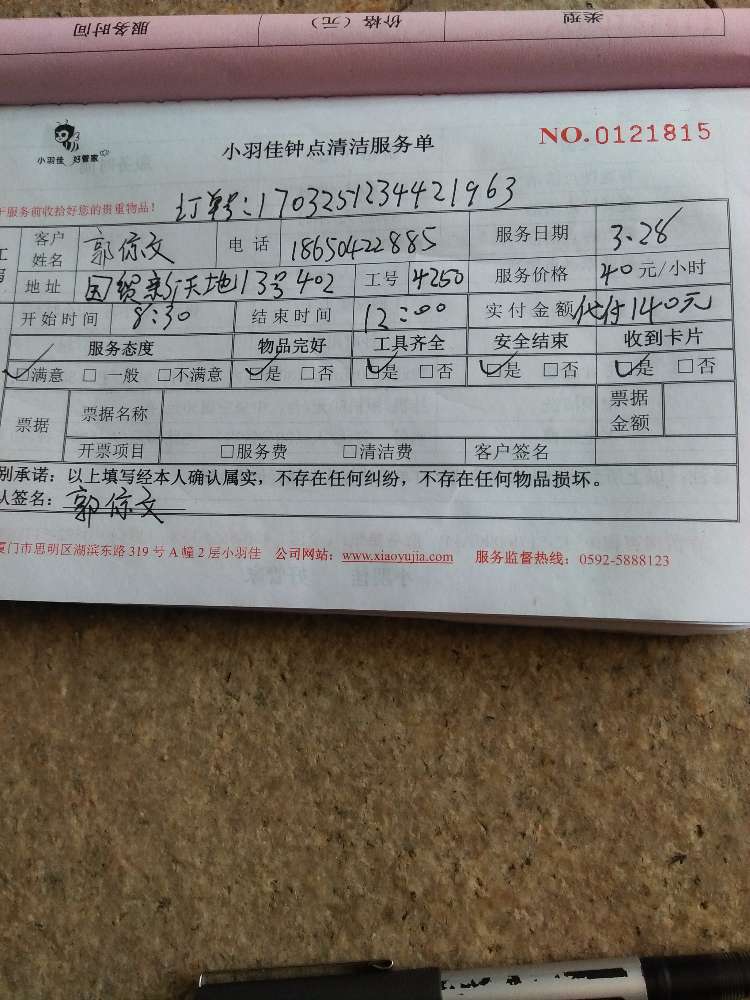 服务时间 价格（元） 类型
小羽佳 好管家
小羽佳钟点清洁服务单
NO.0121815
于服务前收拾好您的贵重物品！
订单号:1703251234421963
客户姓名 郭倞文 电话 18650422885 服务日期 3.28
地址 国贸新天地13号402 工号 4250 服务价格 40元/小时
开始时间 8:30 结束时间 12:00 实付金额 代付140元
服务态度 物品完好 工具齐全 安全结束 收到卡片
☑满意 □一般 □不满意 ☑是 □否 ☑是 □否 ☑是 □否 ☑是 □否
票据 票据名称 票据金额
开票项目 □服务费 □清洁费 客户签名
别承诺：以上填写经本人确认属实，不存在任何纠纷，不存在任何物品损坏。
人签名：郭倞文
厦门市思明区湖滨东路319号A幢2层小羽佳 公司网站：www.xiaoyujia.com 服务监督热线：0592-5888123